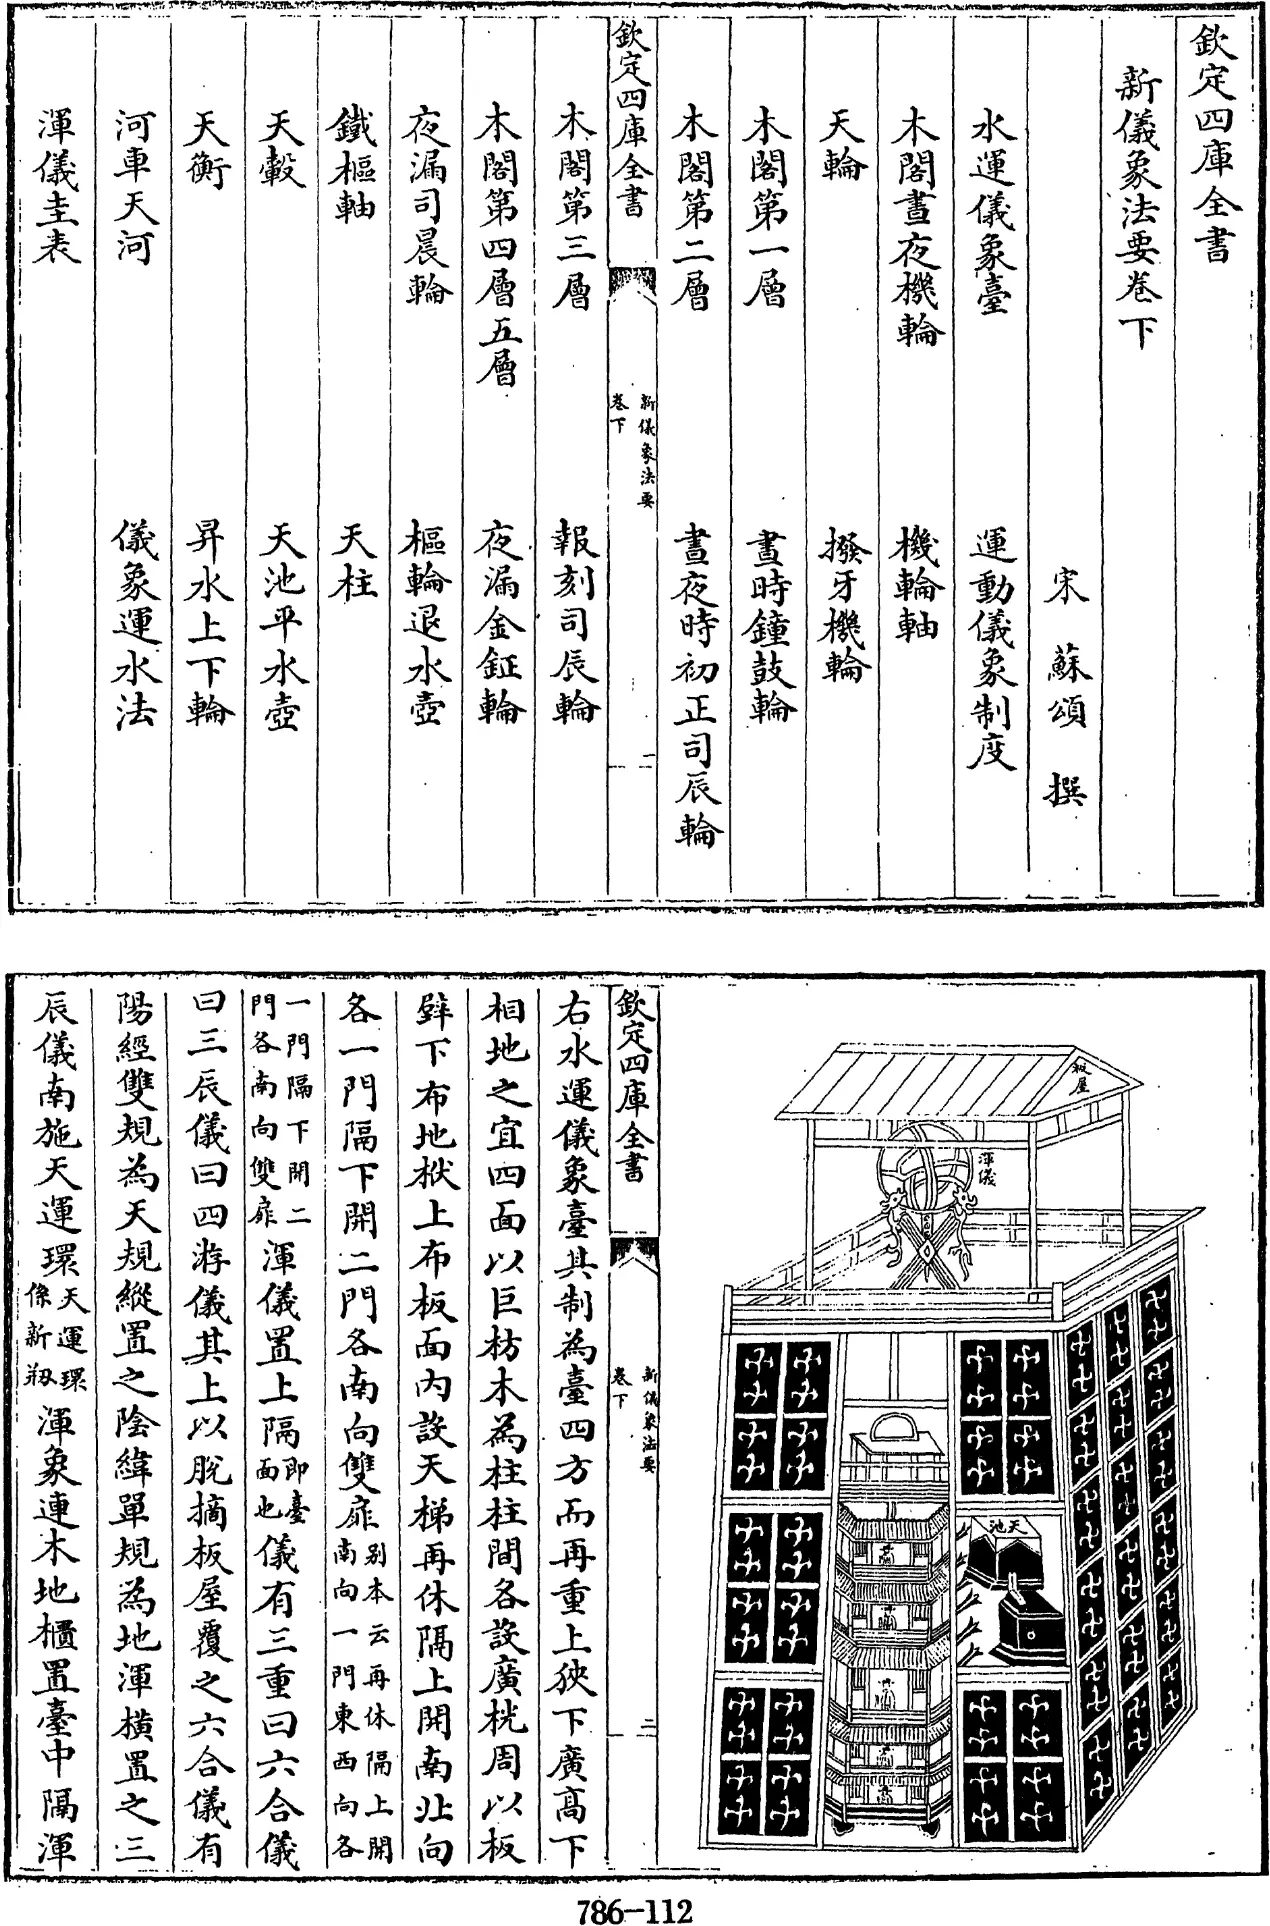 欽定四庫全書
新儀象法要卷下
宋 蘇頌 撰
水運儀象臺 運動儀象制度
木閣晝夜機輪 機輪軸
天輪 撥牙機輪
木閣第一層 晝時鐘鼓輪
木閣第二層 晝夜時初正司辰輪
欽定四庫全書
新儀象法要
卷下
一
木閣第三層 報刻司辰輪
木閣第四層五層 夜漏金鉦輪
夜漏司晨輪 樞輪退水壺
鐵樞軸 天柱
天轂 天池平水壺
天衡 昇水上下輪
河車天河 儀象運水法
渾儀圭表
板屋
渾儀
天池
欽定四庫全書
新儀象法要
卷下
二
右水運儀象臺其制為臺四方而再重上狹下廣高下
相地之宜四面以巨枋木為柱柱間各設廣桄周以板
壁下布地栿上布板面內設天梯再休隔上開南北向
各一門隔下開二門各南向雙扉別本云再休隔上開南向一門東西向各
一門隔下開二門各南向雙扉渾儀置上隔即臺面也儀有三重曰六合儀
曰三辰儀曰四游儀其上以脫摘板屋覆之六合儀有
陽經雙規為天規縱置之陰緯單規為地渾橫置之三
辰儀南施天運環天運環係新刱渾象連木地櫃置臺中隔渾
786-112